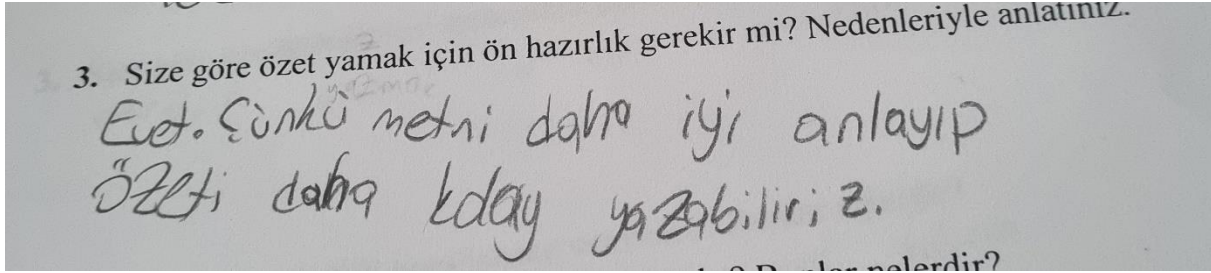 3. Size göre özet yamak için ön hazırlık gerekir mi? Nedenleriyle anlatınız.
Evet. Çünkü metni daha iyi anlayıp
özeti daha kolay yazabiliriz.
nelerdir?